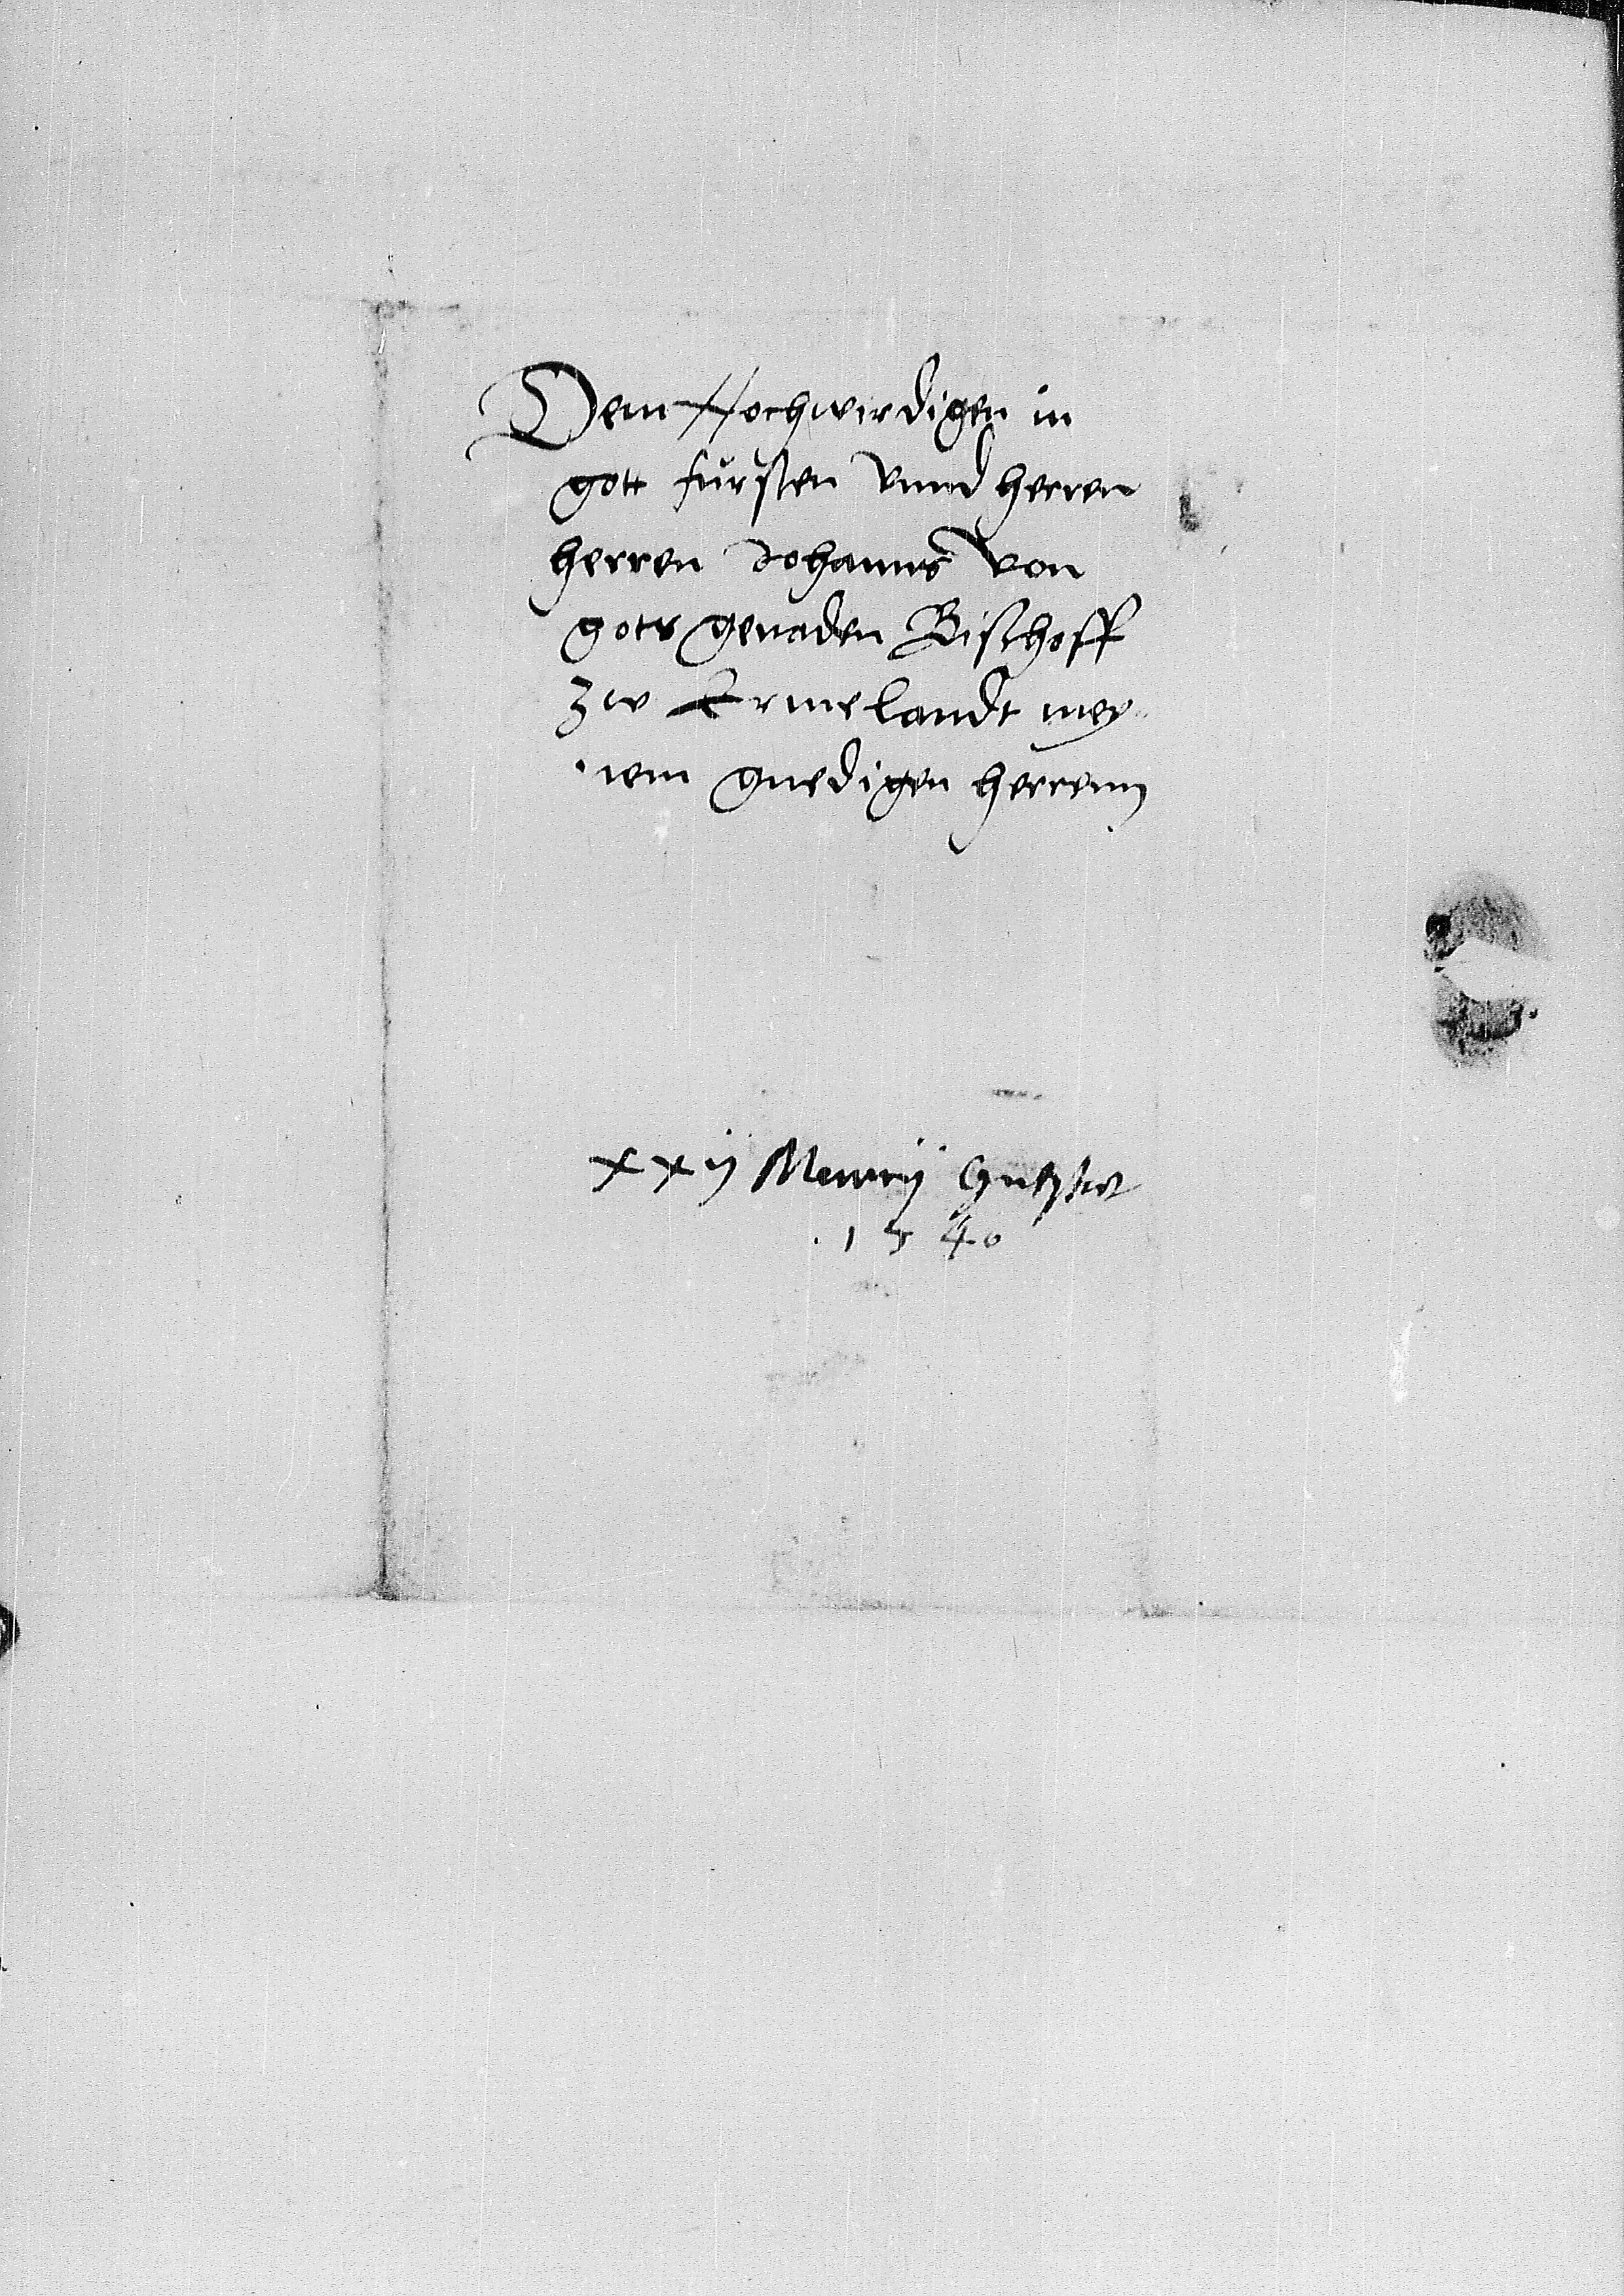 Dem Hochwirdigen in
gott fursten vnnd herren
herren Johanns von
gots genaden Bischoff
zw Ermelandt mey
nem gnedigen herrenn
xxij Marcij
1540